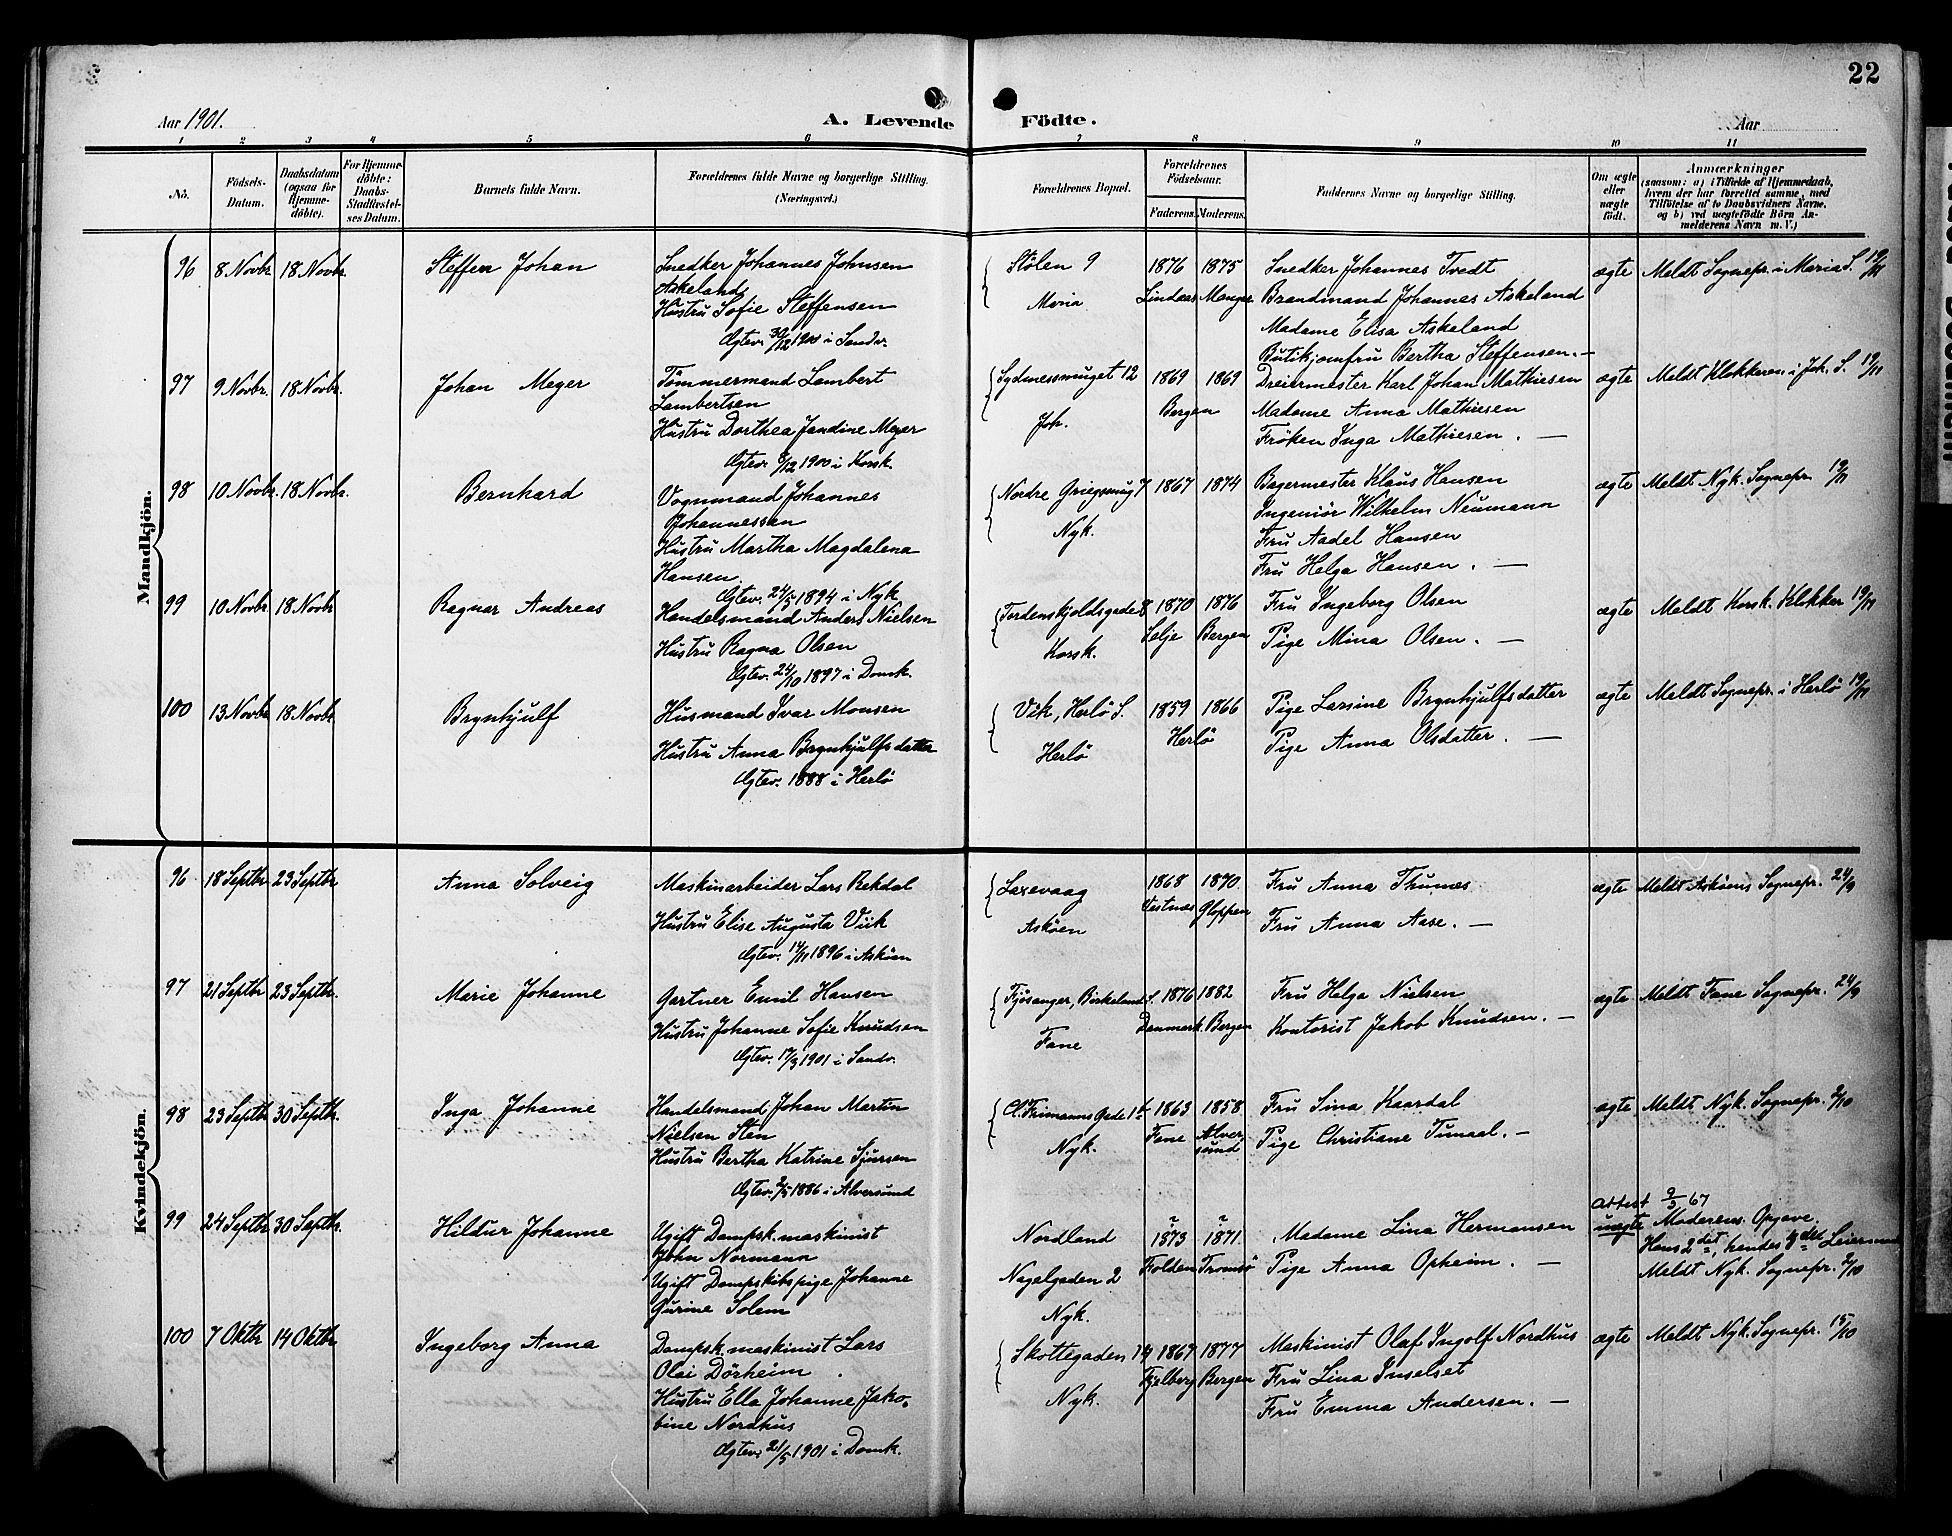 22
Aar 1901.
A. Levende Födte.
Aar
1 2 3 4 5 6 7 8 9 10 11
No.
Födsels-Datum.
Daabsdatum (ogsaa for Hjemme-döbte).
For Hjemme-döbte: Daabs-Stadfæstel-ses Datum.
Barnets fulde Navn.
Forældrenes fulde Navne og borgerlige Stilling. (Næringsvei.)
Forældrenes Bopæl.
Forældrenes Födselsaar.
Faderens. Moderens.
Faddernes Navne og borgerlige Stilling.
Om ægte eller uægte födt.
Anmærkninger
(saasom: a) i Tilfælde af Hjemmedaab, hvem der har forrettet samme, med Tilföielse af to Daabsvidners Navne, og b) ved uægtefödte Börn An-melderens Navn m. V.)
Mandkjön.
96 8 Novbr. 18 Novbr. Steffen Johan Snedker Johannes Johnsen Stölen 9 1876 1875 Snedker Johannes Tvedt ægte Meldt Sognepr. i Maria S. 19/11
Askeland Maria Lindaas Manger Brandmand Johannes Askeland
Hustru Sofie Steffensen Madame Elisa Askeland
Ægtev. 30/12 1900 i Sandv. Butikjomfru Bertha Steffensen. —
97 9 Novbr. 18 Novbr. Johan Meyer Tömmermand Lambert Sydnessmuget 12 1869 1869 Dreiermester Karl Johan Mathiesen ægte Meldt Klokkeren i Joh. S. 19/11
Lambertsen Joh. Bergen Madame Anna Mathiesen
Hustru Dorthea Jandine Meyer Fröken Inga Mathiesen. —
Ægtev. 8/12 1900 i Korsk.
98 10 Novbr. 18 Novbr. Bernhard Vognmand Johannes Nordre Griegsmug 7 1867 1874 Bagermester Klaus Hansen ægte Meldt Nyk. Sognepr. 19/11
Johannessen Nyk. Ingeniör Wilhelm Neumann
Hustru Martha Magdalena Fru Aadel Hansen
Hansen. Fru Helga Hansen. —
Ægtev. 24/5 1894 i Nyk
99 10 Novbr. 18 Novbr Ragnar Andreas Handelsmand Anders Nielsen Tordenskjoldsgade 8 1870 1876 Fru Ingeborg Olsen ægte Meldt Korsk. Klokker 19/11
Hustru Ragna Olsen Korsk. Selje Bergen Pige Mina Olsen. —
Ægtev. 24/10 1897 i Domk.
100 13 Novbr. 18 Novbr. Brynhjulf Husmand Ivar Monsen Vik, Herlö S. 1859 1866 Pige Larsine Brynhjulfsdatter ægte Meldt Sognepr. i Herlö 19/11
Hustru Anna Brynhjulfsdatter Herlö Herlö Pige Anna Olsdatter. —
Ægtev. 1888 i Herlö
Kvindekjön.
96 18 Septbr. 23 Septbr Anna Solveig Maskinarbeider Lars Rekdal Laxevaag 1868 1870. Fru Anna Thunæs ægte Meldt Asköens Sognepr. 24/9
Hustru Elise Augusta Viik Asköen Vestnæs Gloppen Fru Anna Aase. —
Ægtev. 14/11 1896 i Asköen
97 21 Septbr 23 Septbr. Marie Johanne Gartner Emil Hansen Fjösanger, Birkeland S. 1876 1882 Fru Helga Nielsen ægte Meldt Fane Sognepr. 24/9
Hustru Johanne Sofie Knudsen Fane Danmark. Bergen Kontorist Jakob Knudsen. —
Ægtev. 17/3 1901 i Sandv.
98 23 Septbr 30 Septbr. Inga Johanne Handelsmand Johan Martin Cl. Frimanns Gade 1 b 1863 1858 Fru Sina Kaardal ægte Meldt Nyk. Sognepr. 2/10
Nielsen Sten Nyk. Fane Alver-sund Pige Christiane Tunaal. —
Hustru Bertha Katrine Sjursen
Ægtev. 2/5 1886 i Alversund
99 24 Septbr 30 Septbr. Hildur Johanne Ugift Dampsk. maskinist Nordland ? 1873 ? 1871. Madame Lina Hermansen attest 9/3 67 uægte Moderens Opgave.
John Normann Nagelgaden 2 Folden Tromsö Pige Anna Opheim. — Hans 2det, hendes 4det Leiersmaal
Ugift Dampskibspige Johanne Nyk. Meldt Nyk. Sognepr. 2/10
Gurine Solem
100 7 Oktbr 14 Oktbr Ingeborg Anna Dampsk. maskinist Lars Skottegaden 14 1867 1877 Maskinist Olaf Ingolf Nordhus ægte Meldt Nyk. Sognepr. 15/10
Olai Dörheim Nyk. Fjelberg Bergen Fru Lina Inselset
Hustru Ella Johanne Jako- Fru Emma Andersen. —
bine Nordhus
Ægtev. 21/5 1901 i Domk.